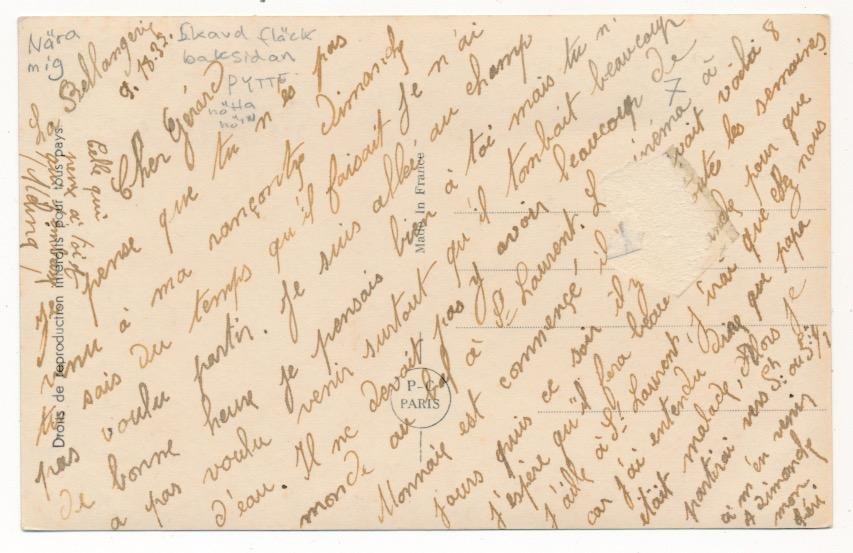 Nära
mig
Skavd fläck
baksidan
PYTTE
Bellangerie
18.32.
Cher Gérard
Je pense que tu n'es pas
venu à ma rançontre dimanche
tu sais du temps qu'il faisait je n'ai
pas voulu partir. Je suis allé au champ
de bonne heure je pensais bien à toi mais tu n'
a pas voulu venir surtout qu'il tombait beaucoup
d'eau. Il ne devait pas y avoir beaucoup de
monde au bal à St Laurent. Le cinéma à
Monnaie est commencé il y avait voilà 8
jours puis ce soir il y toute les semaines.
j'espère qu'il fera beau dimanche pour que
j'aille à St Laurent, j'irai que chez nous
car j'ai entendu dire que papa
était malade, Alors je
partirai vers 5h ou 5h 1/2
à m'en venir
A dimanche
mon
Celle qui
pense à toi
7
Droits de reproduction interdits pour tous pays.
Made in France
P-C
PARIS